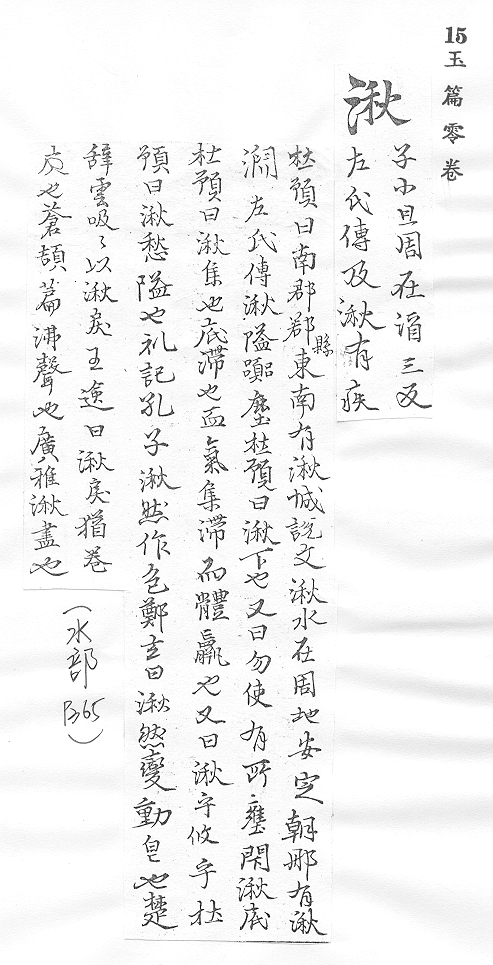 15玉篇零卷
湫
子小且周在湑三反
左氏傳及湫有疾
杜預曰南郡鄀縣東南有湫城説文湫水在周地安定朝那有湫
淵左氏傳湫隘踞塵杜預曰湫下也又曰勿使有所壅閇湫底
杜預曰湫集也底滯也血氣集滯而體羸也又曰湫乎攸乎杜
預曰湫愁隘也礼記孔子湫然作色鄭玄曰湫然變動皃也楚
辞雲吸〻以湫戾王逸曰湫戾猶卷
戾也蒼頡篇沸聲也廣雅湫盡也
（水部 P.365）